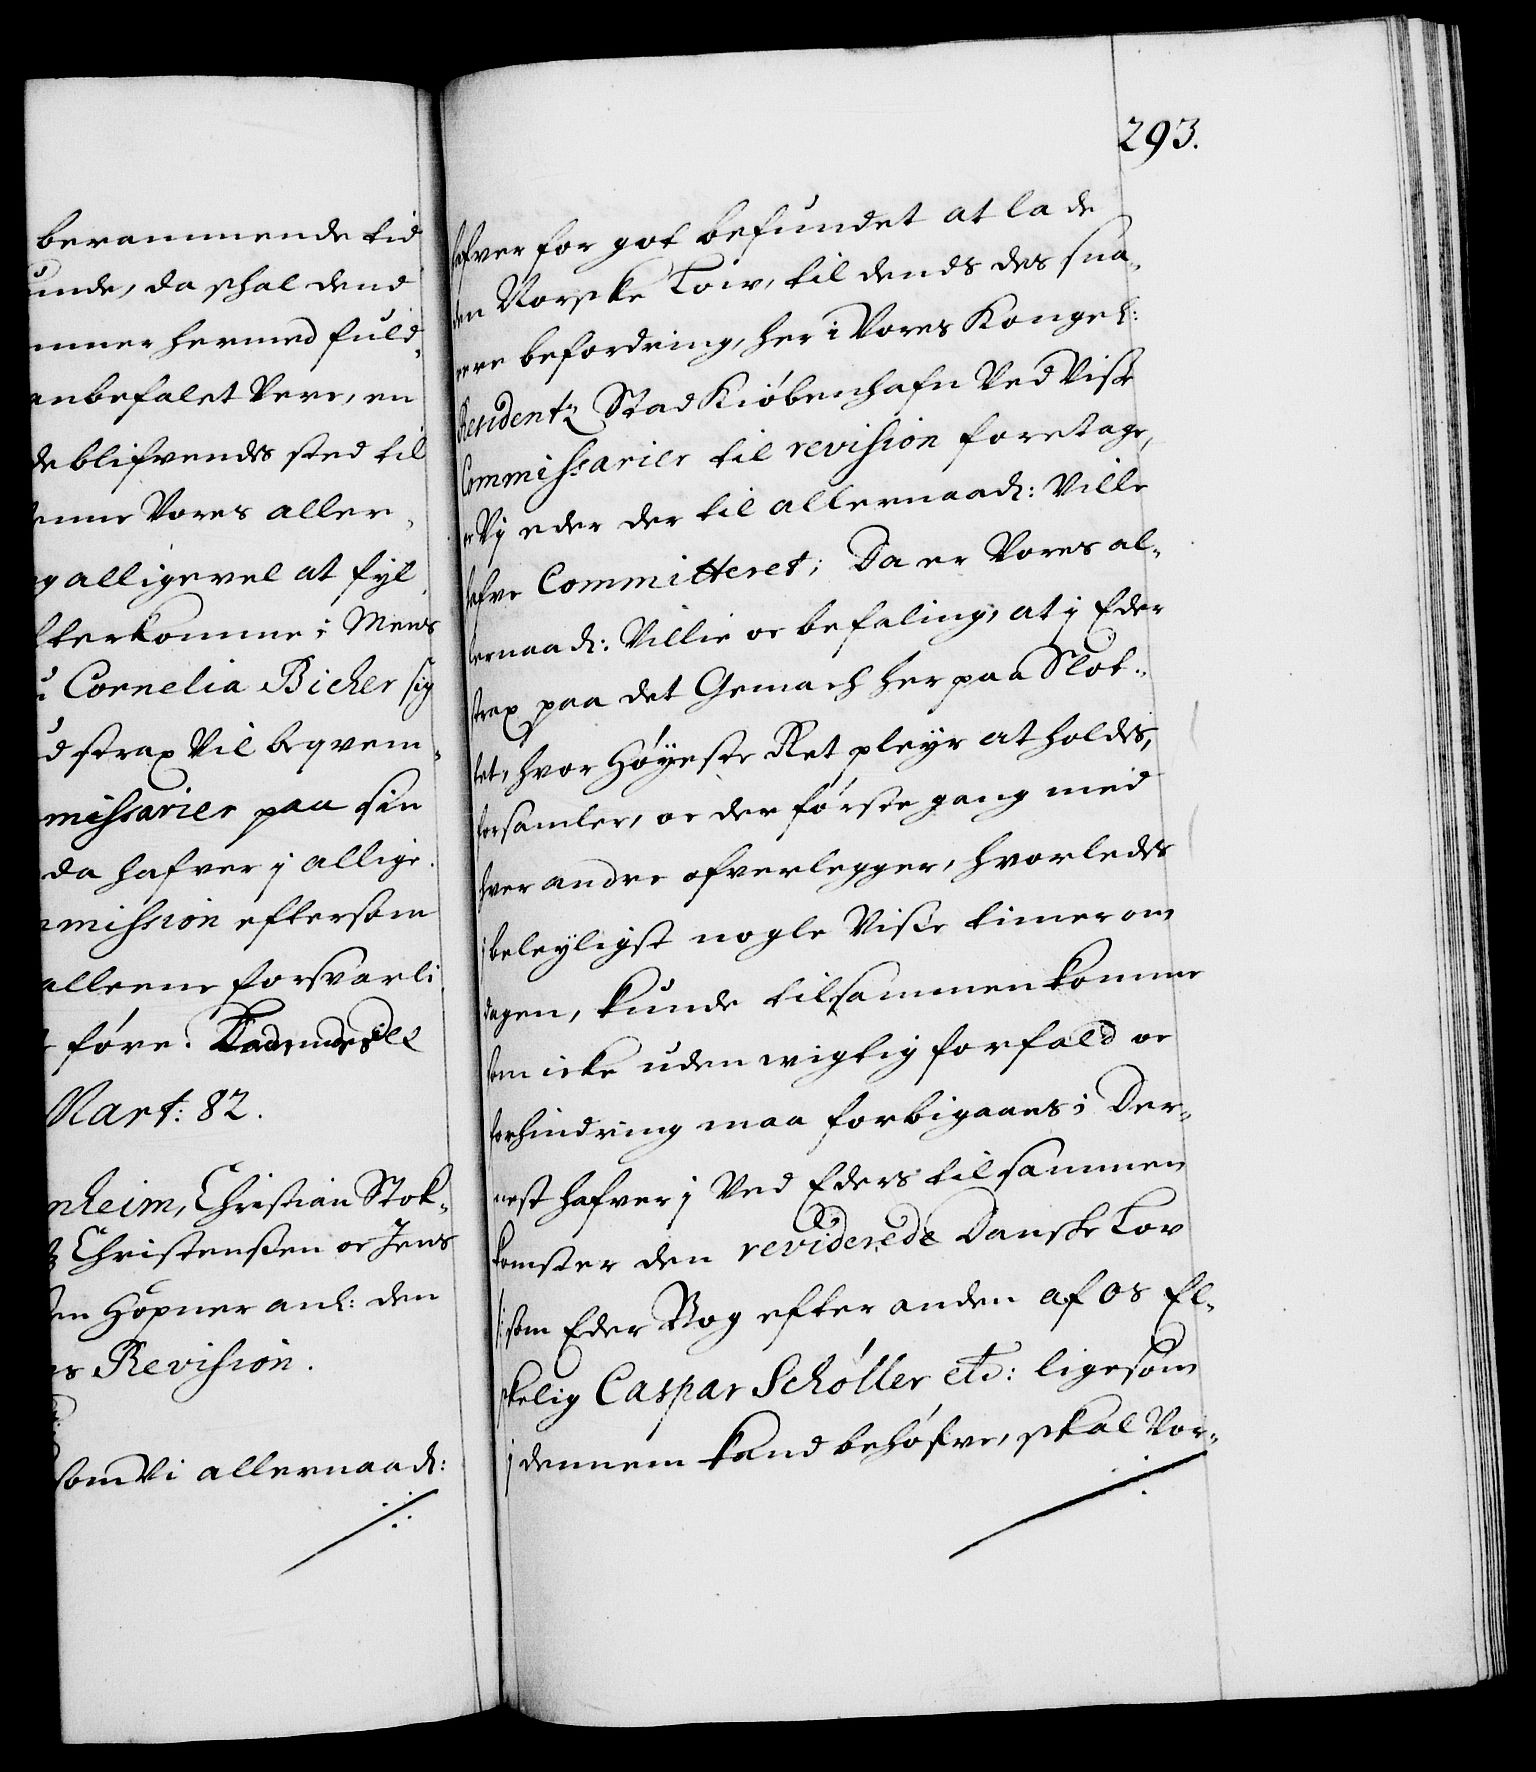 berammende tid
unde, da schal dend
mmer hermed fuld-
anbefalet Vere, en
deblifvendes sted til
enne Vores aller-
og alligevel at fyl-
fterkomme; Mens
Cornelia Bicher sig
d strax Vil beqvem-
missarier paa sin
da hafver j allige-
mission eftersom
alleene forsvarli
føre.
Mart: 82.
nheim, Christian Stok-
Christensen oc Jens
en Höpner anl: den
s Revision.
som Vi allernaad:
293.
hafver for got befundet at lade
den Norske Low, til dends des sna-
rere befordring, her i Vores Kongel:
Residentz Stad Kiøbenhafn Ved Visse
Commissarier til revision foretage,
oc Vj eder der til allernaad: Ville
hafve Committeret; Da er Vores al-
lernaad: Villie oc befaling, at j Eder
strax paa det Gemach her paa Slot-
tet, hvor Høyeste Ret pleyer at holdes,
forsamler, oc der første gang med
hver andre ofverlegger, hvorledes
j beleyligst nogle Visse timer om
dagen, kunde tilsammenkomme
som icke uden wigtig forfald oc
forhindring maa forbigaaes; Der-
nest hafver j Ved Eders tilsammen
komster den reviderede Danske Lov
/: som Eder Bog efter anden af os El-
skelig Caspar Schøller etc: ligesom
j dennem kand behøfve, skal Vor-